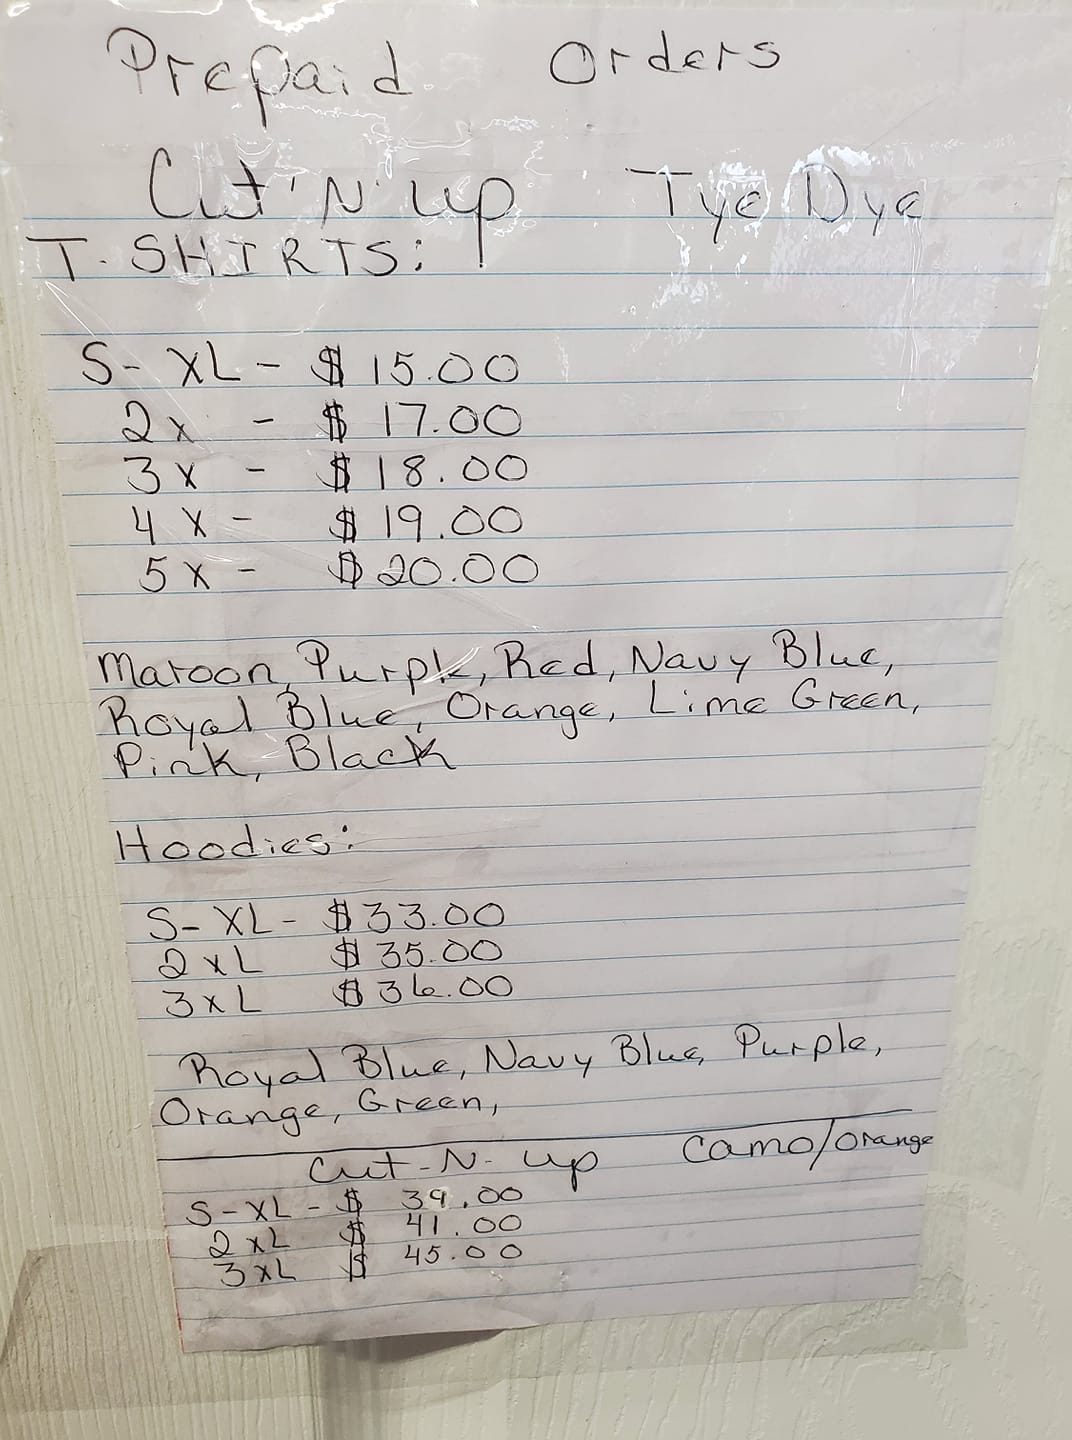 Prepaid Orders
Cut'N'up Tye Dye
T. SHIRTS:
S- XL - $ 15.00
2x - $ 17.00
3x - $ 18.00
4x - $ 19.00
5x - $ 20.00
Maroon, Purple, Red, Navy Blue,
Royal Blue, Orange, Lime Green,
Pink, Black
Hoodies:
S- XL - $33.00
2xL $ 35.00
3xL $ 36.00
Royal Blue, Navy Blue, Purple,
Orange, Green,
Cut-N-up Camo/Orange
S-XL - $ 39.00
2xL $ 41.00
3xL $ 45.00